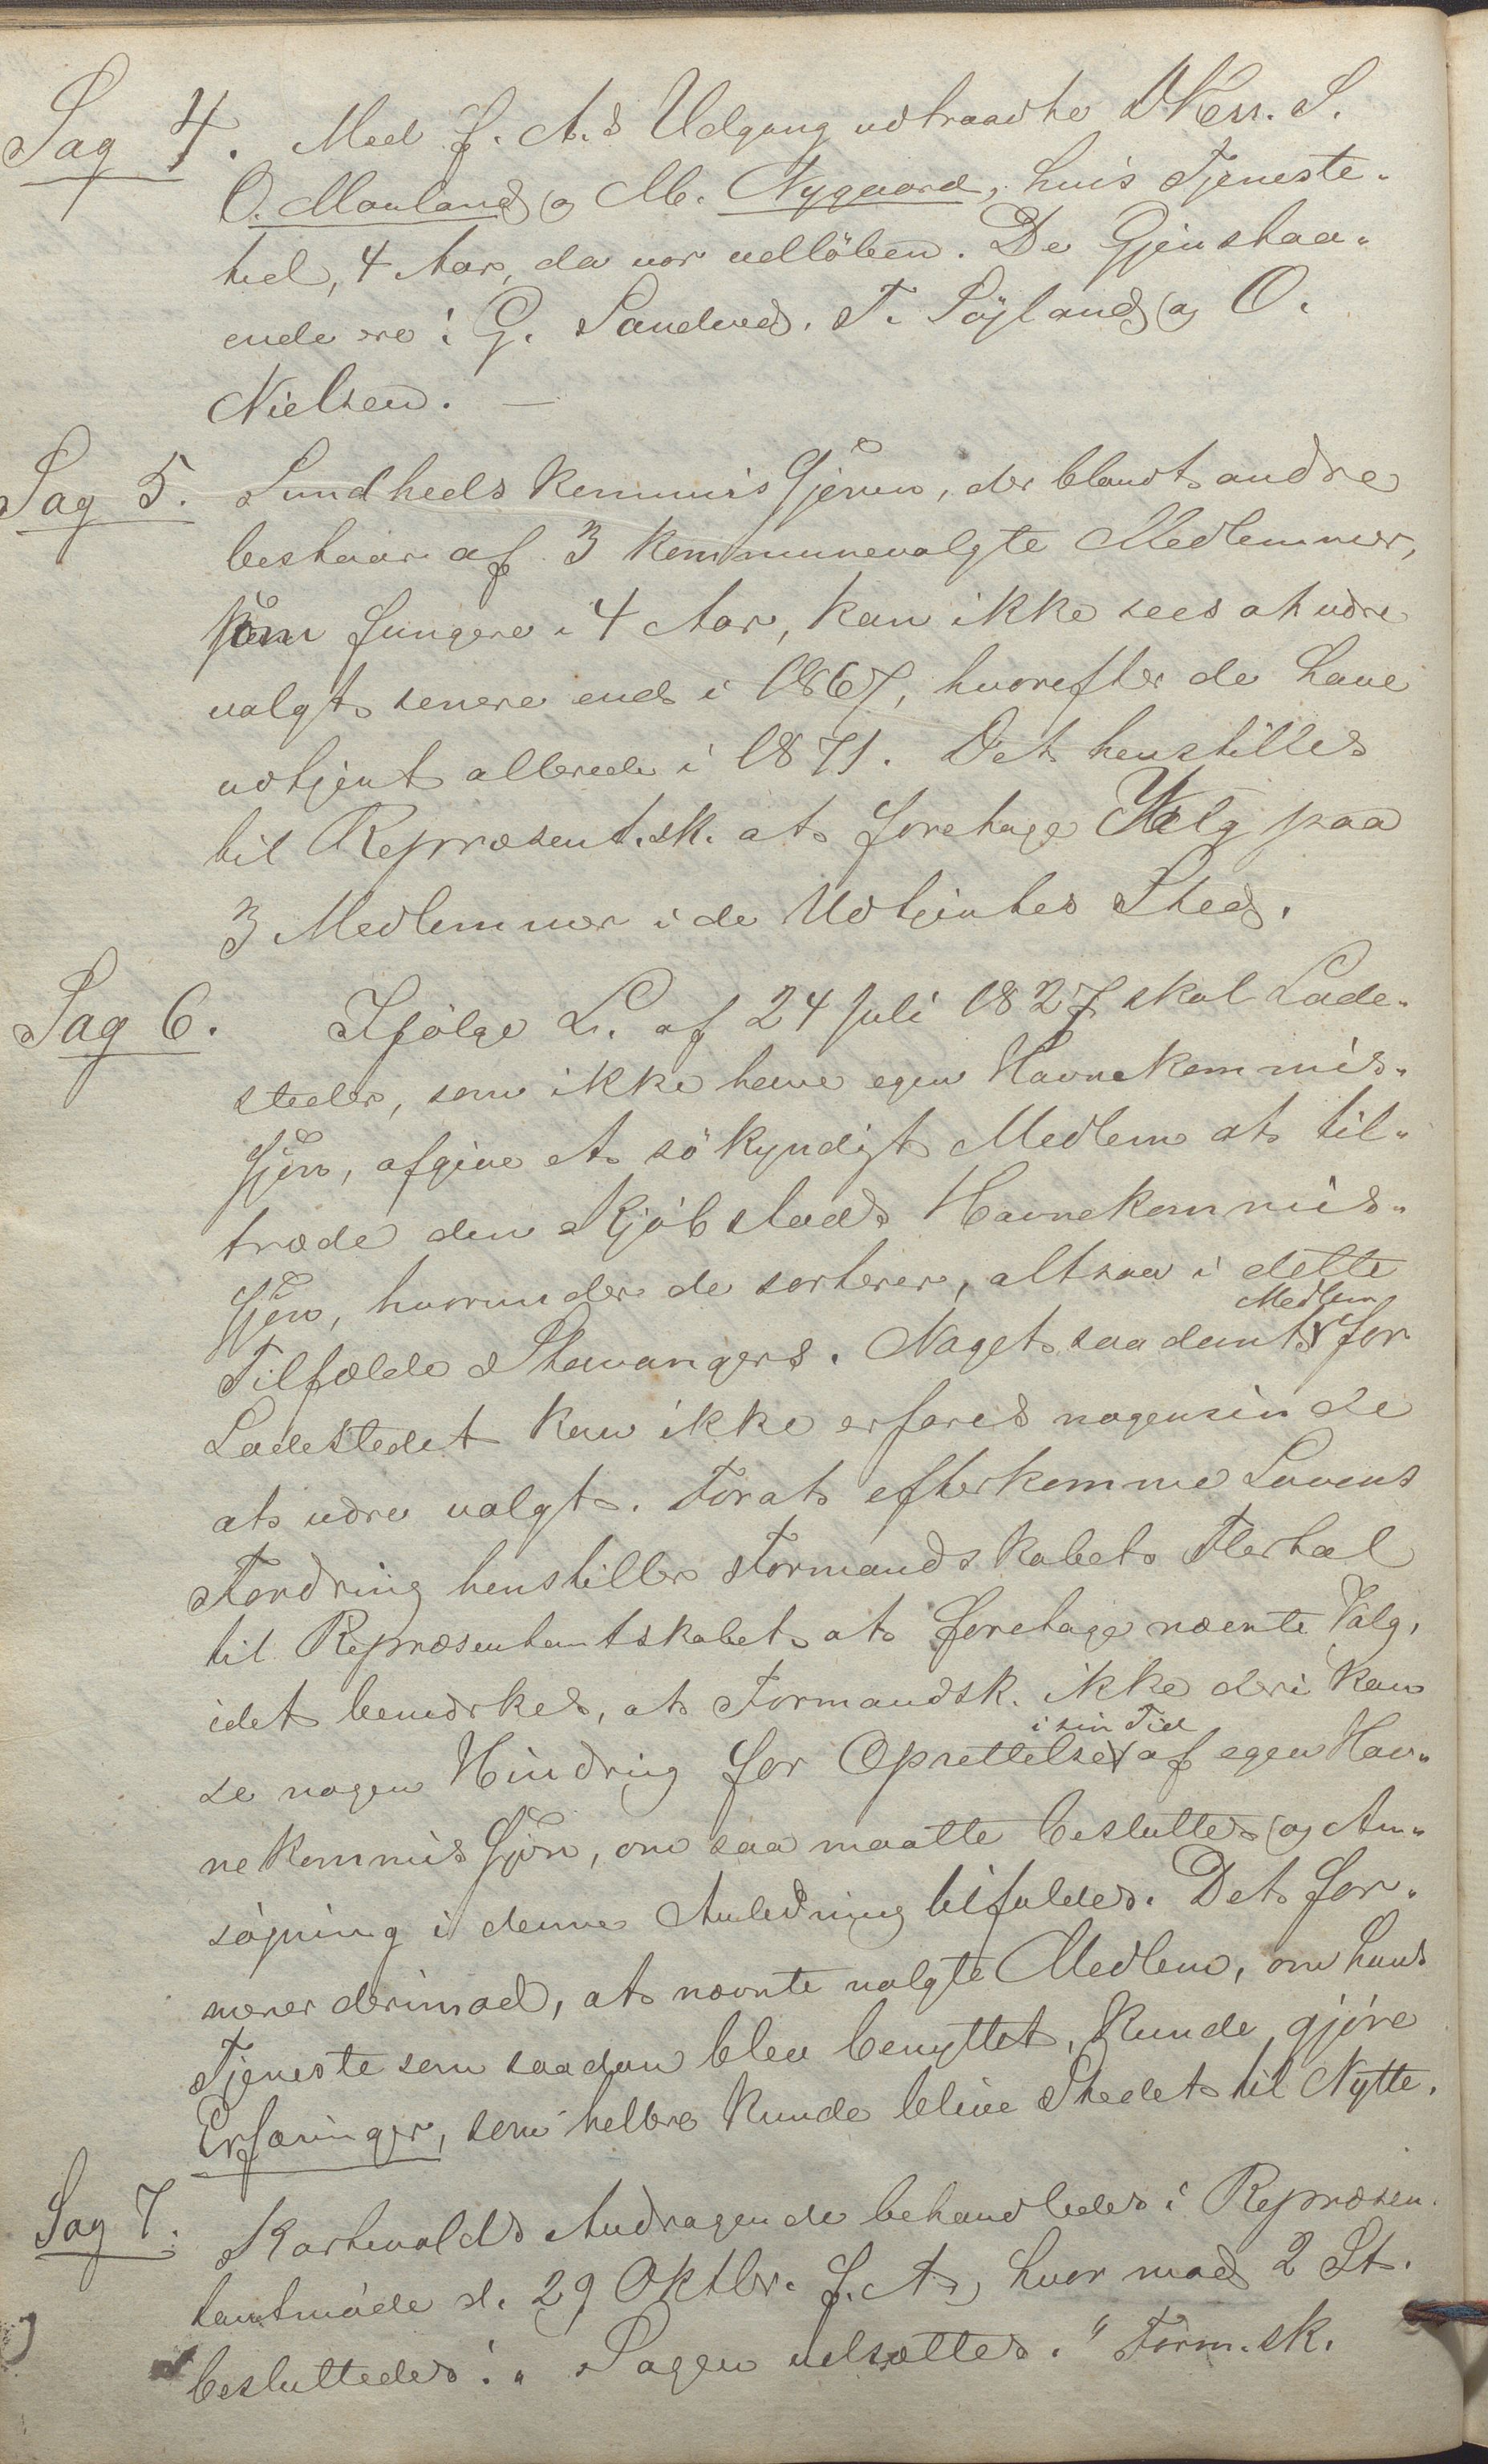 Sag 4. Med f. A.s Udgang udtraadte DHerr. S.
O. Mauland og M. Nygaard, hvis Tjeneste-
tid, 4 Aar, da var udløben. De Gjenstaa-
ende ere: G. Sandved, T. Søyland og O.
Nielsen. —
Sag 5. Sundhedskommissjonen, der blandt andre
bestaar af 3 kommunevalgte Medlemmer,
som fungere i 4 Aar, kan ikke sees at være
valgt senere end i 1867, hvorefter de have
udtjent allerede i 1871. Det henstilles
til Repræsent.sk. at foretage Valg paa
3 Medlemmer i de Udtjentes Sted.
Sag 6. Ifølge L. af 24 Juli 1827 skal Lade-
steder, som ikke have egen Havnekommis-
sjon, afgive et søkyndigt Medlem at til-
træde den Kjøbstads Havnekommis-
sjon, hvorunder de sorterer, altsaa i dette
Medlem
Tilfælde Stavangers. Noget saadant for
Ladestedet kan ikke erfares nogensinde
at være valgt. Forat efterkomme Lovens
Fordring henstiller Formandskabets Flertal
til Repræsentantskabet at foretage nævnte Valg,
idet bemærkes, at Formandsk. ikke deri kan
i sin Tid
se nogen Hindring for Oprettelse af egen Hav-
nekommissjon, om saa maatte besluttes og An-
søgning i denne Anledning bifaldes. Det for-
mener derimod, at nævnte valgte Medlem, om hans
Tjeneste som saadan blev benyttet, kunde gjøre
Erfaringer, som heller kunde blive Stedet til Nytte.
Sag 7. Kartevolds Andragende behandledes i Repræsen-
tantmøde d. 29 Oktbr. f. A., hvor mod 2 St.
besluttedes: „Sagen udsættes.” Form.sk.